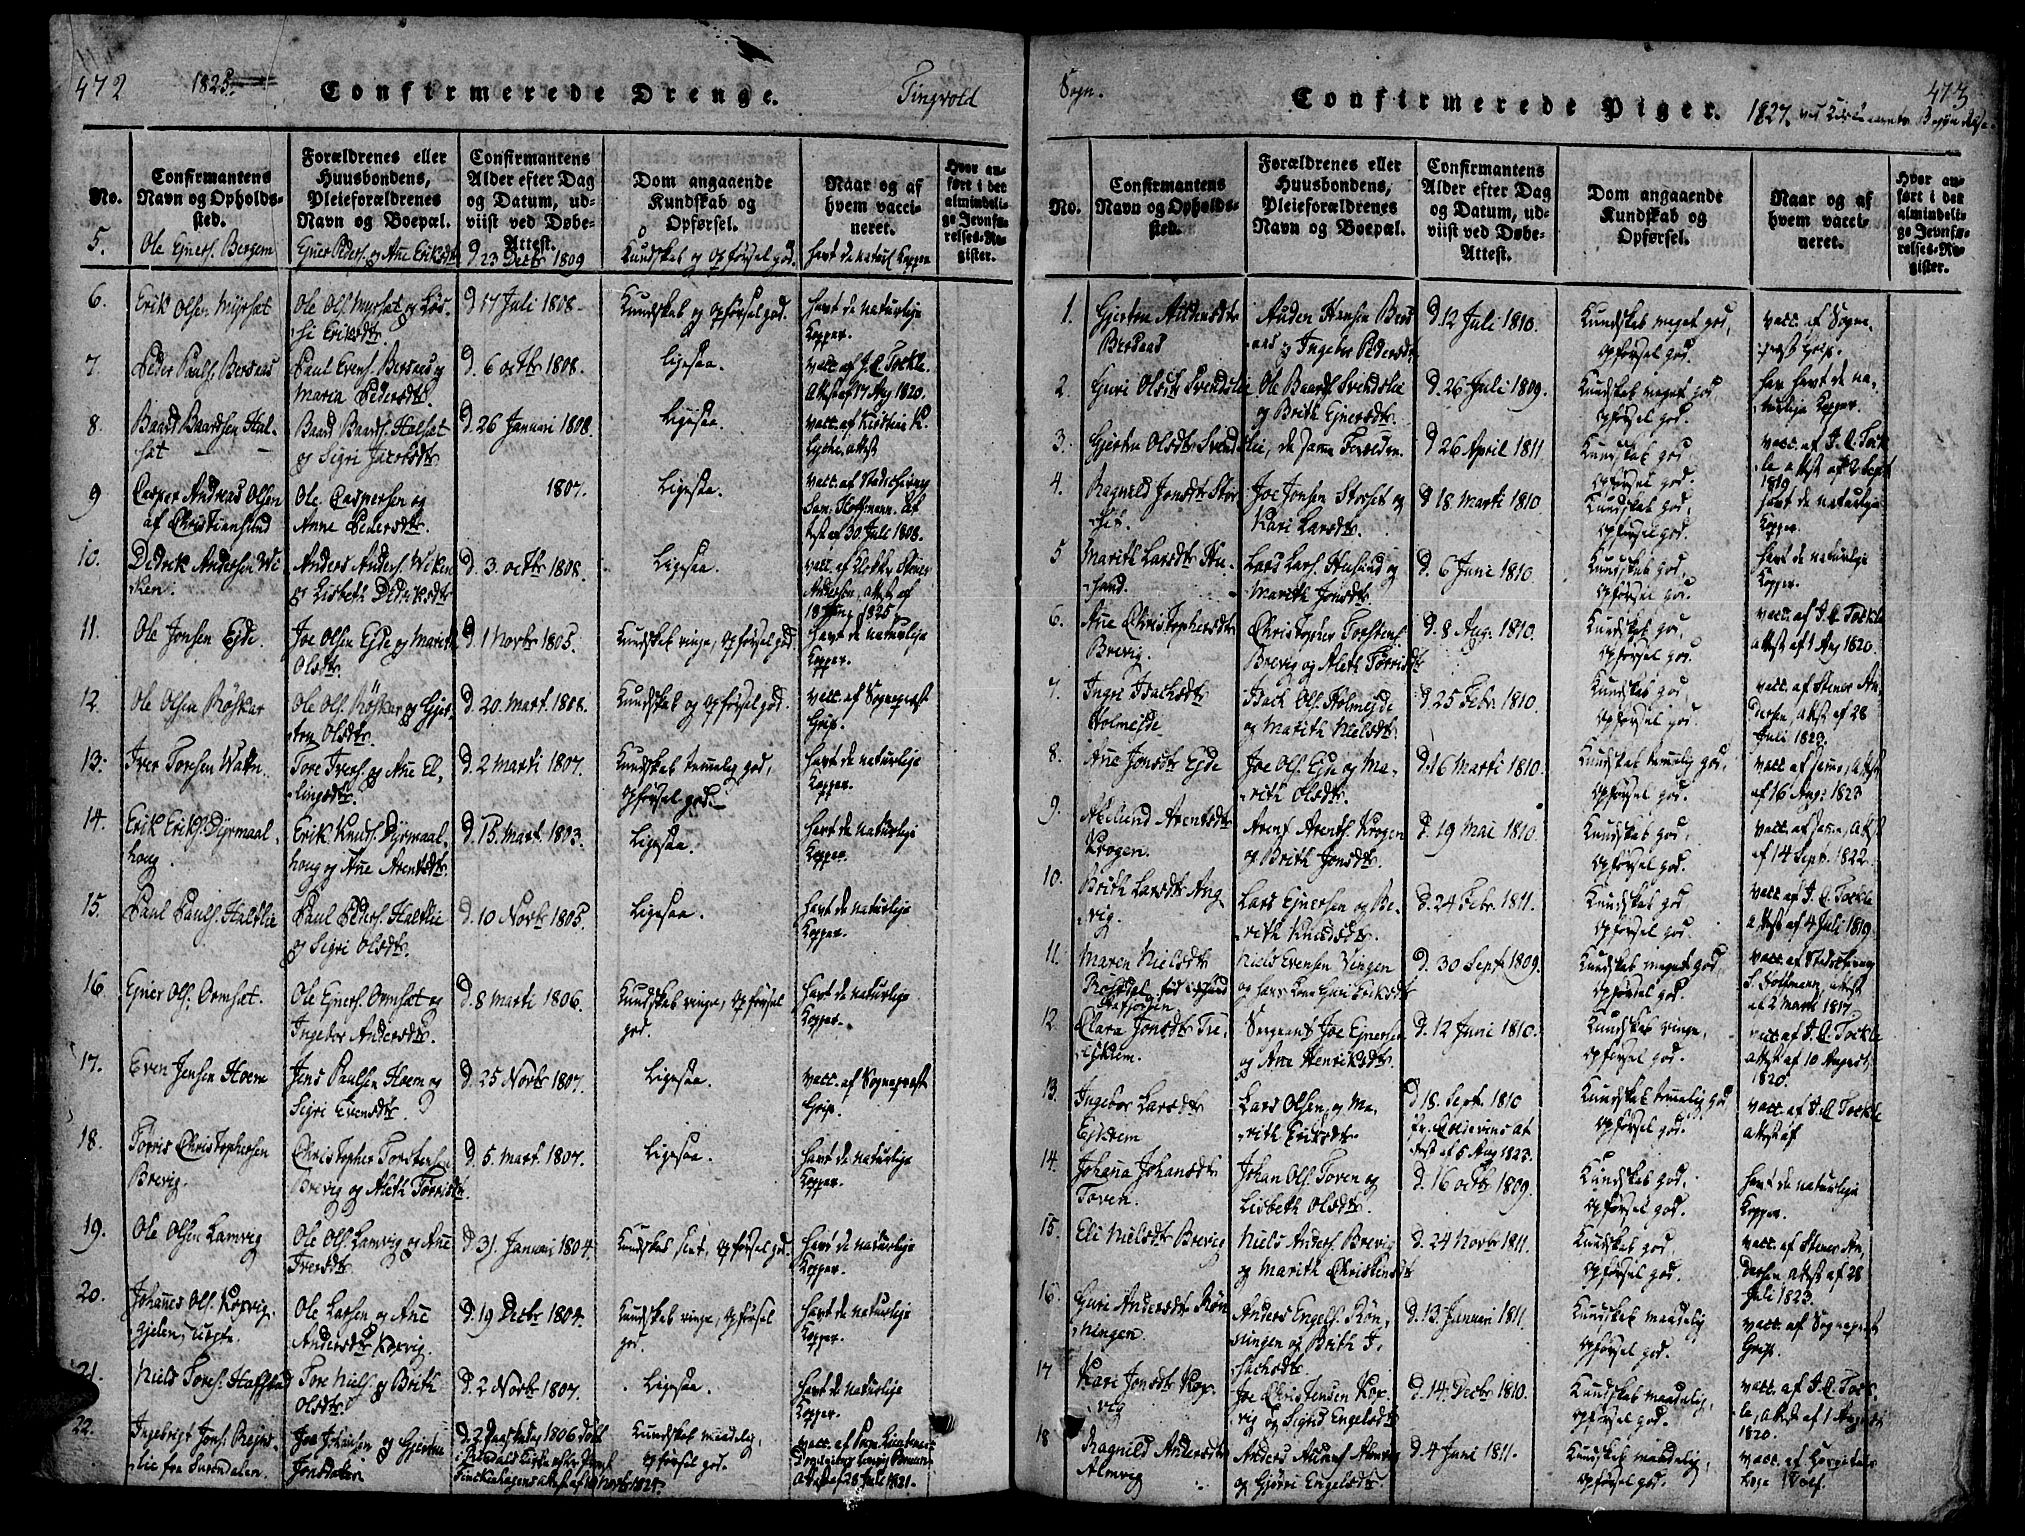 472
1825.
Confirmerede Drenge.
Tingvold
No.
Confirmantens
Navn og Opholds-
sted.
Forældrenes eller
Huusbondens,
Pleieforældrenes
Navn og Boepæl.
Confirmantens
Alder efter Dag
og Datum, ud-
viist ved Døbe-
Attest.
Dom angaaende
Kundskab og
Opførsel.
Naar og af
hvem vacci-
neret.
Hvor an-
ført i det
almindeli-
ge Jevnfø-
relses-Re-
gister.
5.
Ole Ejners. Bergem
Ejner Olders. og Ane Eriksdtr
d. 23 Decbr 1809
Kundskab og opførsel god.
havt de naturl. Kopper
6.
Erik Olsen Myrsæt
Ole Ols. Myrsæt og
Eriksdtr
d. 17 Juli 1808.
Kundskab og opførsel god.
havt de naturlige
Kopper.
7.
Peder Pauls. Bersaas
Paul Evens. Bersaas og
Maria Pedersdtr.
d. 6 octbr 1808.
Ligesaa.
vacc. af J. C. Tockle.
Attest af 17 Aug 1820.
8.
Baard Baardsen Hal-
sæt
Baard Baards. Halsæt
og Sigri Jacobsdtr
d. 26 Januari 1808.
Ligesaa.
vacc. af Kistian K.
attest
9
Casper Andreas Olsen
af Christiansund
Ole Caspersen og
Anne Pedersdtr.
1807.
Ligesaa.
vacc. af Stadschirurg
Sam. Hoffmann. At-
test af 30 Juli 1808.
10.
Didrik Andersen Wi-
ken.
Anders Anders. Wiken
og Lisbeth Didriksdtr
d. 3. octbr 1808.
Ligesaa.
vacc. af Klokker Stener
Andersen, attest af
18 Jung 1825
11.
Ole Jonsen Ejde.
Joe Olsen Ejde og Marith
Olsdtr.
d. 1 Novbr 1805.
Kundskab ringe, opførsel god
havt de naturlige
Kopper.
12.
Ole Olsen Røskar
Ole Ols. Røskar og Gjer-
tru Olsdtr.
d. 20. Mart. 1808.
Kundskab og opførsel god.
vacc. af Sognepræst
Grip.
13.
Iver Toresen Watn.
Tore Ivers. og Ane El-
lingsdtr.
d. 2 Marti 1807.
Kundskab temmelig god,
opførsel god.
havt de naturlige
Kopper.
14.
Erik Eriks. Dyrmaal-
houg.
Erik Knuds. Dyrmaal-
houg og Ane Arentsdtr.
d. 15. Mart. 1803.
Ligesaa.
havt de naturlige
Kopper.
15.
Paul Pauls. Halslie
Paul Peders. Halslie
og Sigri Olsdtr.
d. 10 Novbr 1805.
Ligesaa.
havt de naturlige
Kopper.
16
Ejner Ols. Ormsæt.
Ole Ejners. Ormsæt og
Ingebor Andersdtr.
d. 8 Marti 1806.
Kundskab ringe, opførsel
god.
havt de naturlige
Kopper.
17.
Even Jensen Hoem
Jens Paulsen Hoem og
Sigri Evensdtr.
d. 25 Novbr 1807.
Ligesaa.
vacc. af Sognepræst
Grip.
18.
Tørris Christophersen
Brevig.
Christopher Torstens.
Brevig og Aleth Tørrisdtr.
d. 5. Mart. 1807.
Ligesaa.
havt de naturlige
Kopper.
19.
Ole Olsen Lamvig
Ole Ols. Lamvig og Ane
Iversdtr.
d. 31. Januari 1804.
Kundskab slet, opførsel god.
havt de naturlige
Kopper.
20.
Johannes Ols. Korvig
Ole Larsen og Ane
Andersdtr Korvig.
d. 19 Decbr 1804.
Kundskab ringe, opførsel
god.
havt de naturlige
Kopper.
21.
Niels Tores. Hafstad
Tore Niels. og Brith
Olsdtr.
d. 2 Novbr 1807.
Ligesaa.
havt de naturlige
Kopper.
22.
Ingebrigt Jons. Regns-
lie fra Surendalen.
Joe Johansen og Gjertru
Jonsdatter
d. 2 Paaskedag 1806 døbt
attest af 18 Novbr 1824.
Kundskab maadelig,
opførsel god.
Attest af 28 Juli 1821.
Sogn.
Confirmerede Piger.
1827.
473
No.
Confirmantens
Navn og Opholds-
sted.
Forældrenes eller
Huusbondens,
Pleieforældrenes
Navn og Boepæl.
Confirmantens
Alder efter Dag
og Datum, ud-
viist ved Døbe-
Attest.
Dom angaaende
Kundskab og
Opførsel.
Naar og af
hvem vacci-
neret.
Hvor an-
ført i det
almindeli-
ge Jevnfø-
relses-Re-
gister.
1.
Gjertru Audensdtr
Bersaas
Auden Hansen Bers-
aas og Ingebor Pedersdtr
d. 12 Juli 1810.
Kundskab meget god,
opførsel god.
vacc. af Sogne-
præst Grip.
2.
Guri Olsdtr Svendslie
Ole Baards. Svendslie
og Brith Ejnersdtr.
d. 26 Juli 1809.
Kundskab meget god
opførsel god.
har havt de na-
turlige Kopper.
3.
Gjertru Olsdtr Svendslie,
de samme Forældre.
d. 26 April 1811
Kundskab god,
opførsel god.
vacc. af J. C. Tock-
le attest af 2 Sept
1819.
4.
Ragnild Jonsdtr Stor-
sæt.
Joe Jonsen Storset og
Kari Larsdtr.
d. 18 Marti 1810.
Kundskab god,
opførsel god.
havt de naturlige
Kopper.
5
Marith Larsdtr Hu-
sund.
Lars Lars. Husund og
Marith Jonsdtr
d. 6 Juni 1810.
Kundskab god,
opførsel god.
havt de naturlige
Kopper.
6.
Ane Christophersdtr
Brevig.
Christopher Torstens.
Brevig og Aleth Tørrisdtr
d. 8. Aug. 1810.
Kundskab god,
opførsel god.
vacc. af J. C. Tockle
attest af 1 Aug 1820.
7.
Inger Isachsdtr
Holmejde
Isach Ols. Holmejde
og Marith Nielsdtr.
d. 25 Febr. 1810.
Kundskab god,
opførsel god.
vacc. af Stener An-
dersen, attest af 28
Juli 1823.
8.
Ane Jonsdtr Ejde
Joe Ols. Ejde og Ma-
rith Olsdtr.
d. 16 Marti 1810.
Kundskab temmelig god,
opførsel god.
vacc. af samme, attest
af 16 Aug: 1823
9.
Arentsdtr
Krogen.
Arent Arents. Krogen
og Brith Jonsdtr.
d. 19 Mai 1810.
Kundskab god,
opførsel god.
vacc. af samme, attest
af 14 Sept. 1822.
10.
Brith Larsdtr Ang-
vig.
Lars Ejnersen og Be-
rith Knudsdtr.
d. 24 Febr. 1811.
Kundskab god
opførsel god.
vacc. af J. C. Tockle
attest af 4 Juli 1819.
11.
Maren Nielsdtr
Niels Evensen Vingen
og hans Kone Guri Eriksdtr
d. 30 Sept. 1809.
Kundskab meget god,
opførsel god.
vacc. af Stadschirurg
S. Hoffmann, attest
af 2 Marti 1817.
12.
Clara Jonsdtr Tre-
Sergeant Joe Ejnersen
og Ane Henriksdtr.
d. 12 Juni 1810.
Kundskab ringe,
opførsel god.
vacc. af J. C. Tockle
attest af 10 Augusti
1820.
13.
Ingebor Larsdtr
Lars Olsen, og Ma-
rith Eriksdtr.
d. 18. Sept. 1810
test af 5 Aug 1823.
Kundskab temmelig god
opførsel god.
vacc. af J C Tockle
attest af
14.
Johana Johansdtr
Toven.
Johan Ols. Toven og
Lisbeth Olsdtr.
d. 16 octbr 1809.
Kundskab god,
opførsel god.
havt de naturlige
Kopper.
15.
Eli Nielsdtr Brevig
Niels Anders. Brevig
og Marith Christensdtr
d. 24 Novbr 1811.
Kundskab god,
opførsel god.
vacc. af Stener An-
dersen attest af 28
Juli 1823.
16.
Guri Andersdtr Røn-
ningen.
Anders Engels. Røn-
ningen og Brith I-
sachsdtr
d. 13. Januari 1811.
Kundskab maadelig
opførsel god.
vacc. af Sognepræst
Grip.
17
Kari Jonsdtr Kor-
vig
Joe Christensen Kor-
vig og Sigrid Engelsdtr
d. 14. Decbr 1810.
Kundskab maadelig,
opførsel god.
vacc. af J. C. Tock-
le, attest af 1 Augusti
1820.
18
Ragnild Andersdtr
Almvig
Anders Almvig
og Gjøri Engelsdtr
d. 4 Juni 1811.
Kundskab maadelig,
opførsel god.
vacc. af
Wolf.